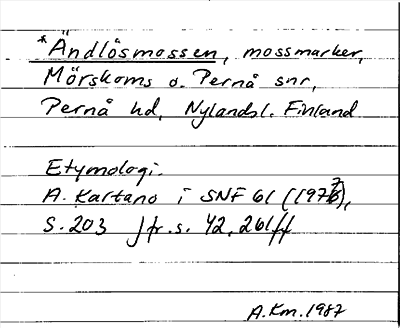 *Ändlösmossen, mossmarker,
Mörskoms o. Pernå snr,
Pernå hd, Nylandsl. Finland
Etymologi.
A. Kartano i SNF 61 (1977),
S. 203 Jfr. s. 42, 261ff
A.Km. 1987